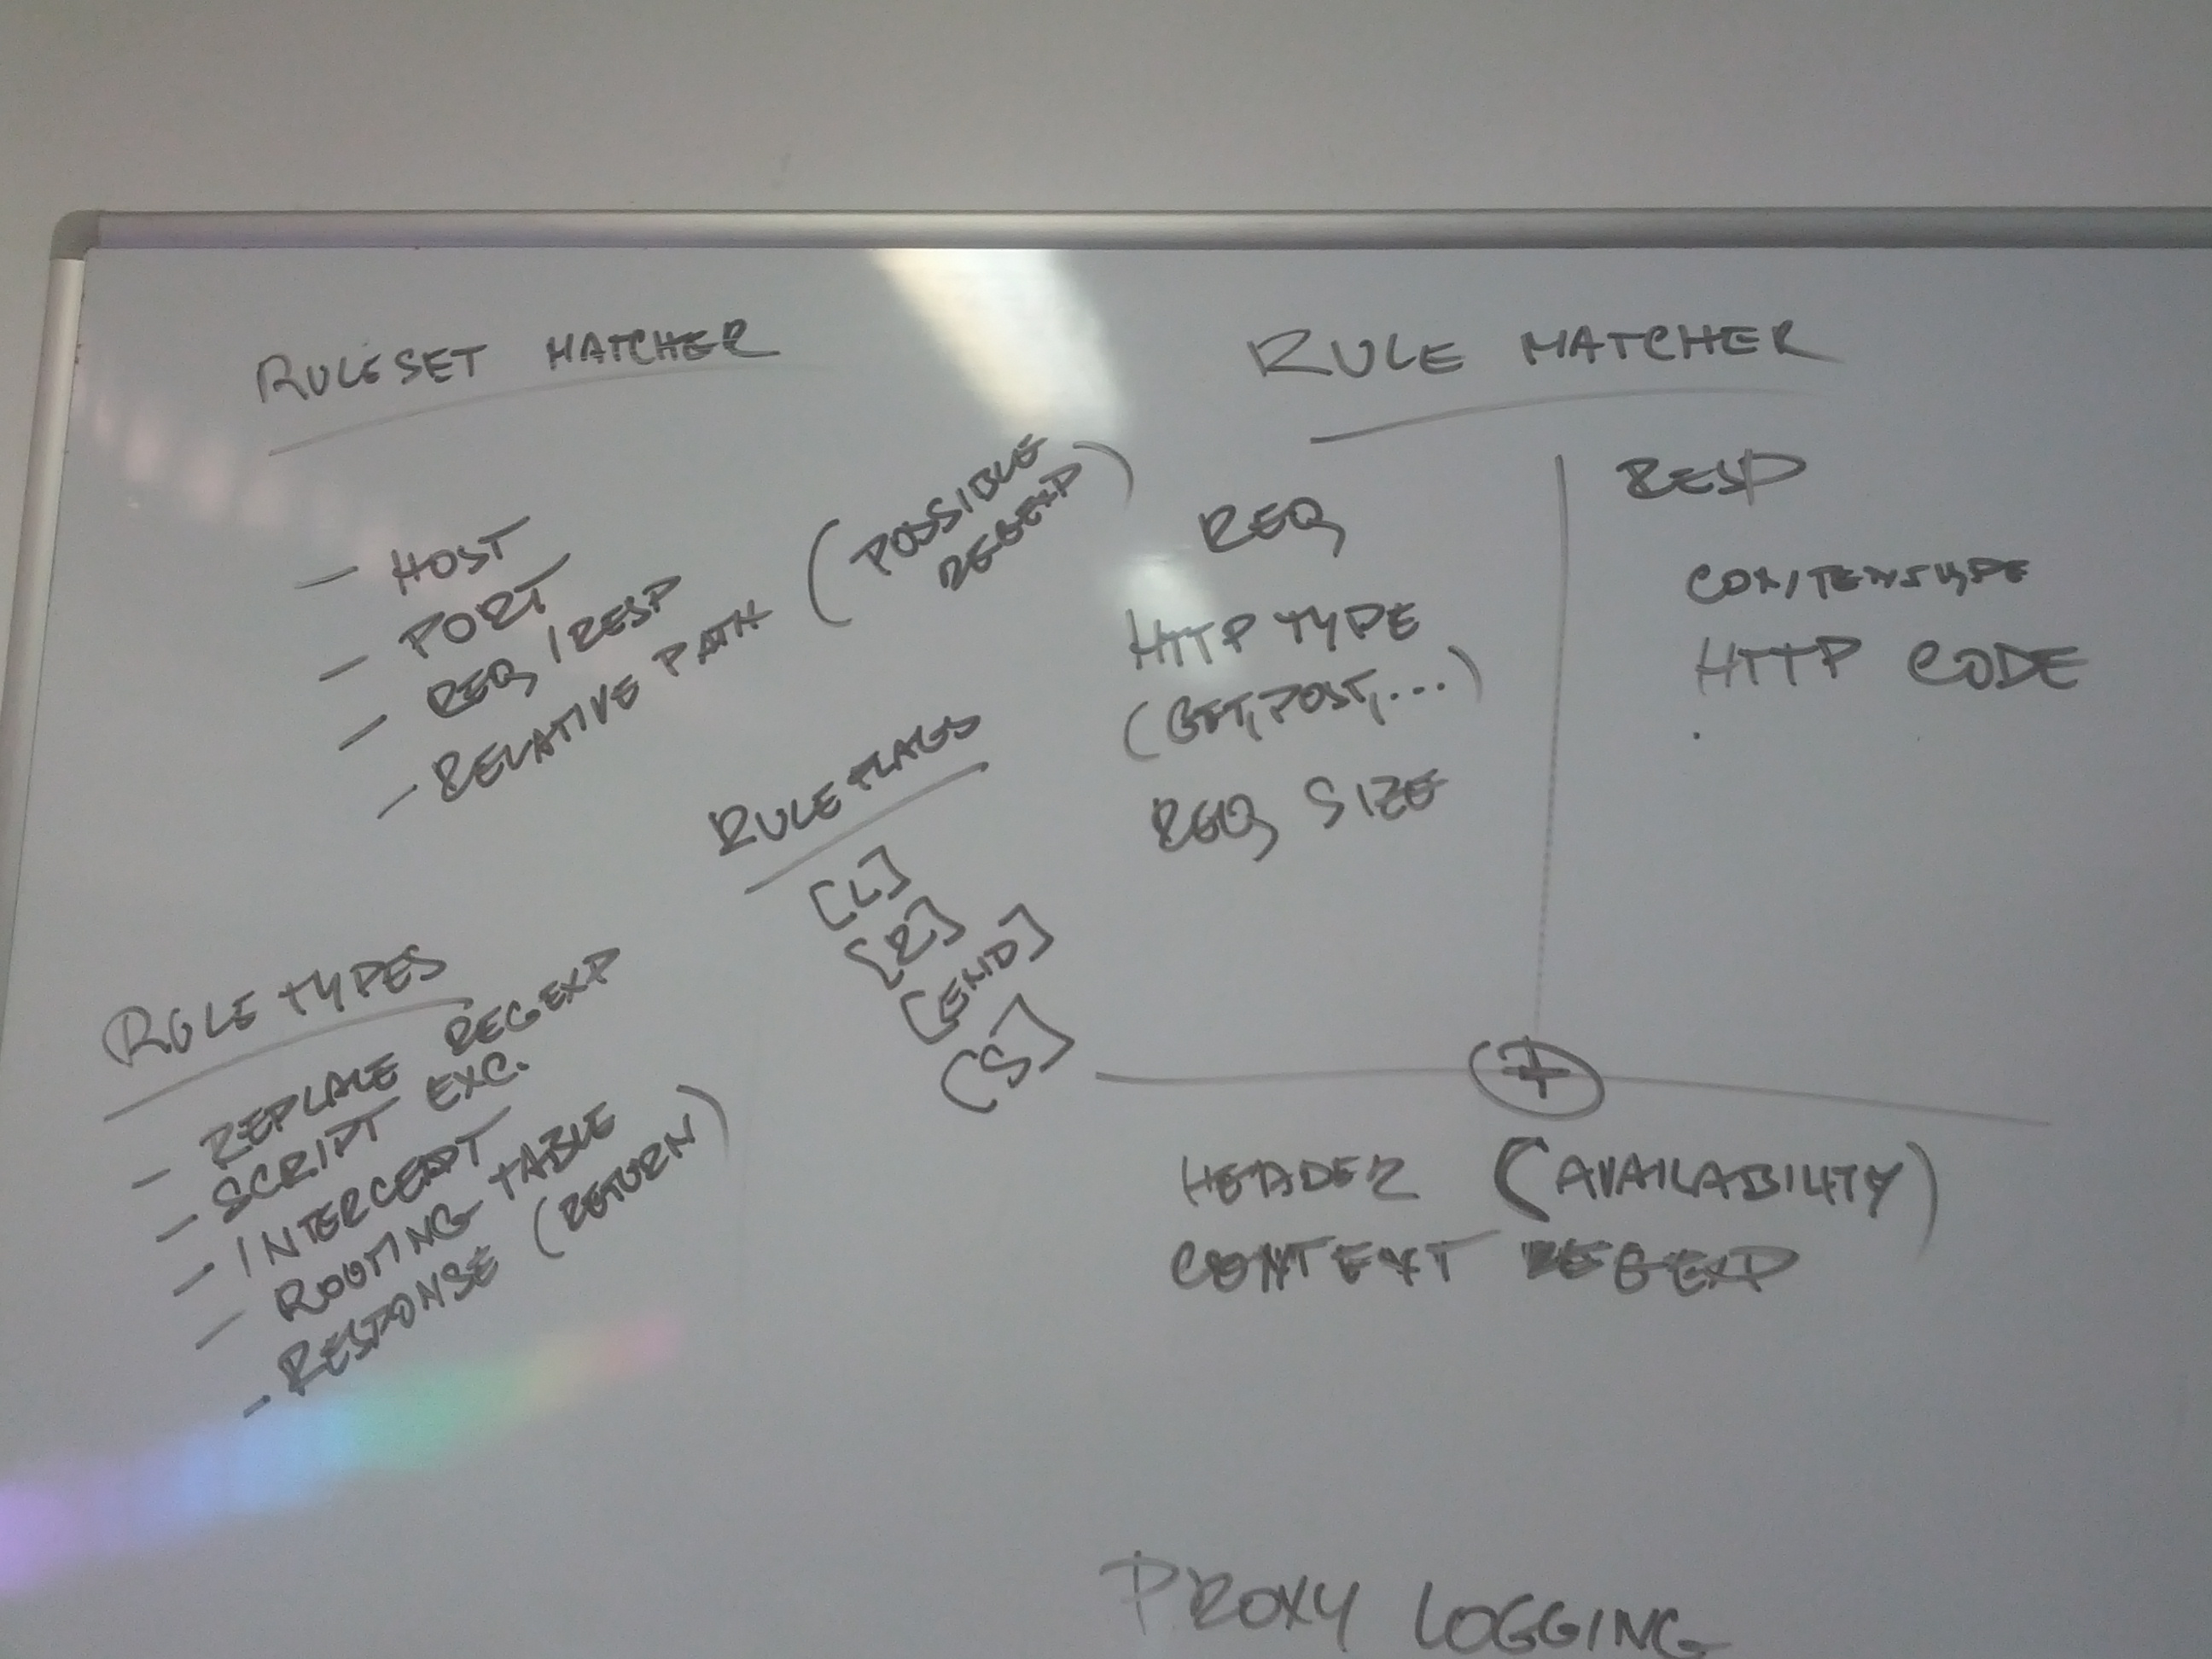 RULESET MATCHER
- HOST
- PORT
- REQ / RESP
- RELATIVE PATH (POSSIBLE
REGEXP)
RULE MATCHER
REQ
HTTP TYPE
(GET, POST, ...)
REQ SIZE
RESP
HTTP CODE
.
+
HEADER (AVAILABILITY)
CONTENT REGEXP
RULE FLAGS
[L]
[R]
[END]
[S]
RULE TYPES
- REPLACE REGEXP
- SCRIPT EXC.
- INTERCEPT
- ROUTING TABLE
- RESPONSE (RETURN)
PROXY LOGGING